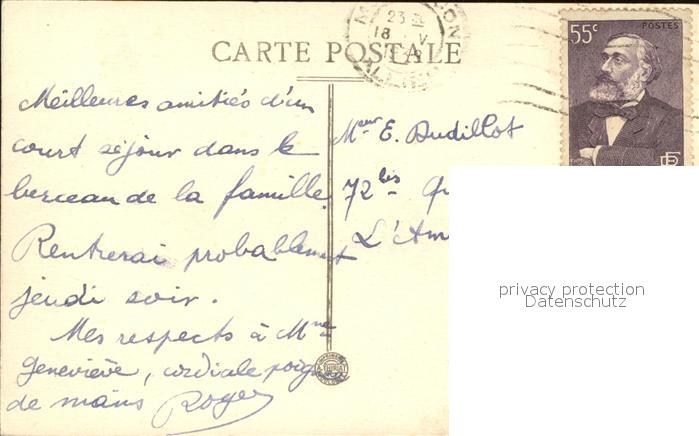 CARTE POSTALE
23
18 V
55c
POSTES
RF
Meilleures amitiés d'un
court séjour dans le
berceau de la famille.
Rentrerai probablement
jeudi soir.
Mes respects à Mme
Geneviève, cordiale poignée
de mains Roger
Meur E. Dudillot
72 bis
L'Am
privacy protection
Datenschutz